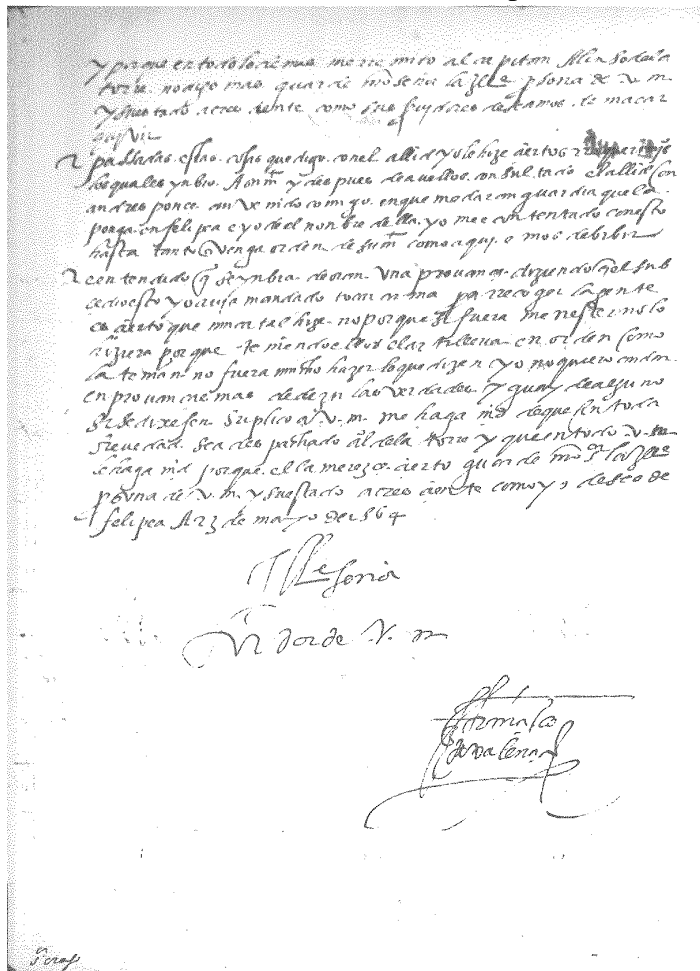 y porque en todo lo demas me rremito al capitan Alonso de la
torre no digo mas guarde nro señor la Ille psona de v. m.
y su estado acreciente como sus seruidores deseamos de maçar
quivir
passadas estas cosas que digo con el allid yo le hize ciertos rrequerimjos
los quales ynbio a su mt y despues de avellos consultado el allid con
andres ponce an venido comigo en que me daran guardia que la
ponga en felipea e yo del nonbre della yo me e contentado con esto
hasta tanto q venga orden de su mt como aqui emos de bibir
e entendido q se ynbia de oran una provança diziendo q el sub
cedio esto yo avia mandado tocar arma pa rrecoger la gente
es cierto que nunca tal hize no porque si fuera menester no lo
hiziera porque tenjendo ellos la artilleria en orden como
la tenian no fuera mucho hazer lo que dizen e yo no quiero andar
en provanças mas de dezir las verdades y guay de alguno
si se dixesen suplico a v. m. me haga md de que sea toda
brevedad sea despachado al de la torre y que en todo v. m.
le haga md porque el la mereze cierto guarde nro sr la Ille
psona de v. m. y su estado acreciente como yo deseo de
felipea A 23 de mayo de 1564
Ille señor
Srdor de v. m.